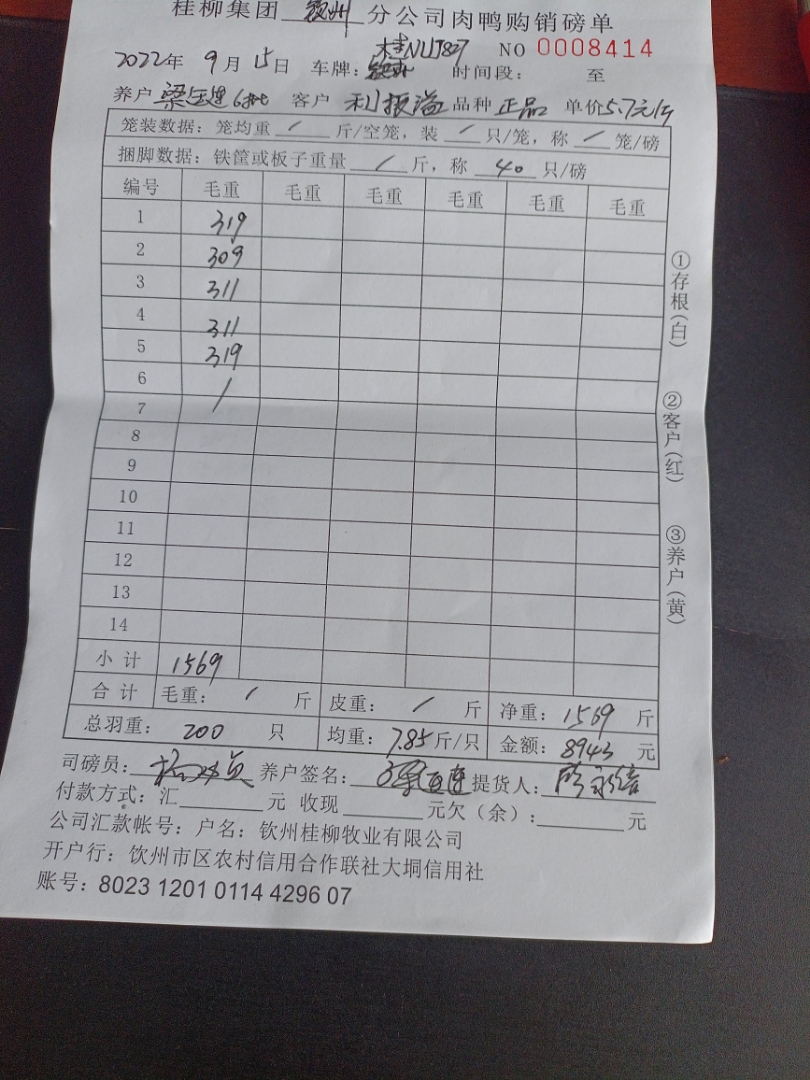 桂柳集团 钦州 分公司肉鸭购销磅单
2022年 9月15日 车牌: 时间段: 至 NO 0008414
养户 客户 利振溢 品种 正品 单价5.7元/斤
笼装数据: 笼均重 / 斤/空笼, 装 / 只/笼, 称 / 笼/磅
捆脚数据: 铁筐或板子重量 / 斤, 称 40 只/磅
编号 毛重 毛重 毛重 毛重 毛重 毛重
1 319
2 309
3 311
4 311
5 319
6 /
7
8
9
10
11
12
13
14
小计 1569
合计 毛重: / 斤 皮重: / 斤 净重: 1569 斤
总羽重: 200 只 均重: 7.85斤/只 金额: 8943 元
司磅员: 养户签名: 提货人:
付款方式: 汇 元 收现 元欠(余): 元
公司汇款帐号: 户名: 钦州桂柳牧业有限公司
开户行: 钦州市区农村信用合作联社大垌信用社
账号: 8023 1201 0114 4296 07
①存根(白)
②客户(红)
③养户(黄)